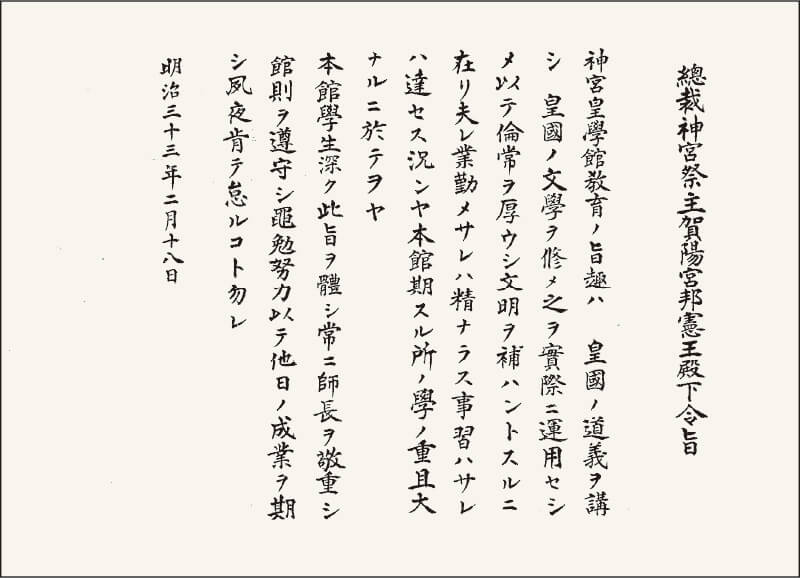 總裁神宮祭主賀陽宮邦憲王殿下令旨
神宮皇學館教育ノ旨趣ハ　皇國ノ道義ヲ講
シ　皇國ノ文學ヲ修メ之ヲ實際ニ運用セシ
メ以テ倫常ヲ厚ウシ文明ヲ補ハントスルニ
在リ夫レ業勤メサレハ精ナラス事習ハサレ
ハ達セス況ンヤ本館期スル所ノ學ノ重且大
ナルニ於テヲヤ
本館學生深ク此旨ヲ體シ常ニ師長ヲ敬重シ
館則ヲ遵守シ黽勉努力以テ他日ノ成業ヲ期
シ夙夜肯テ怠ルコト勿レ
明治三十三年二月十八日